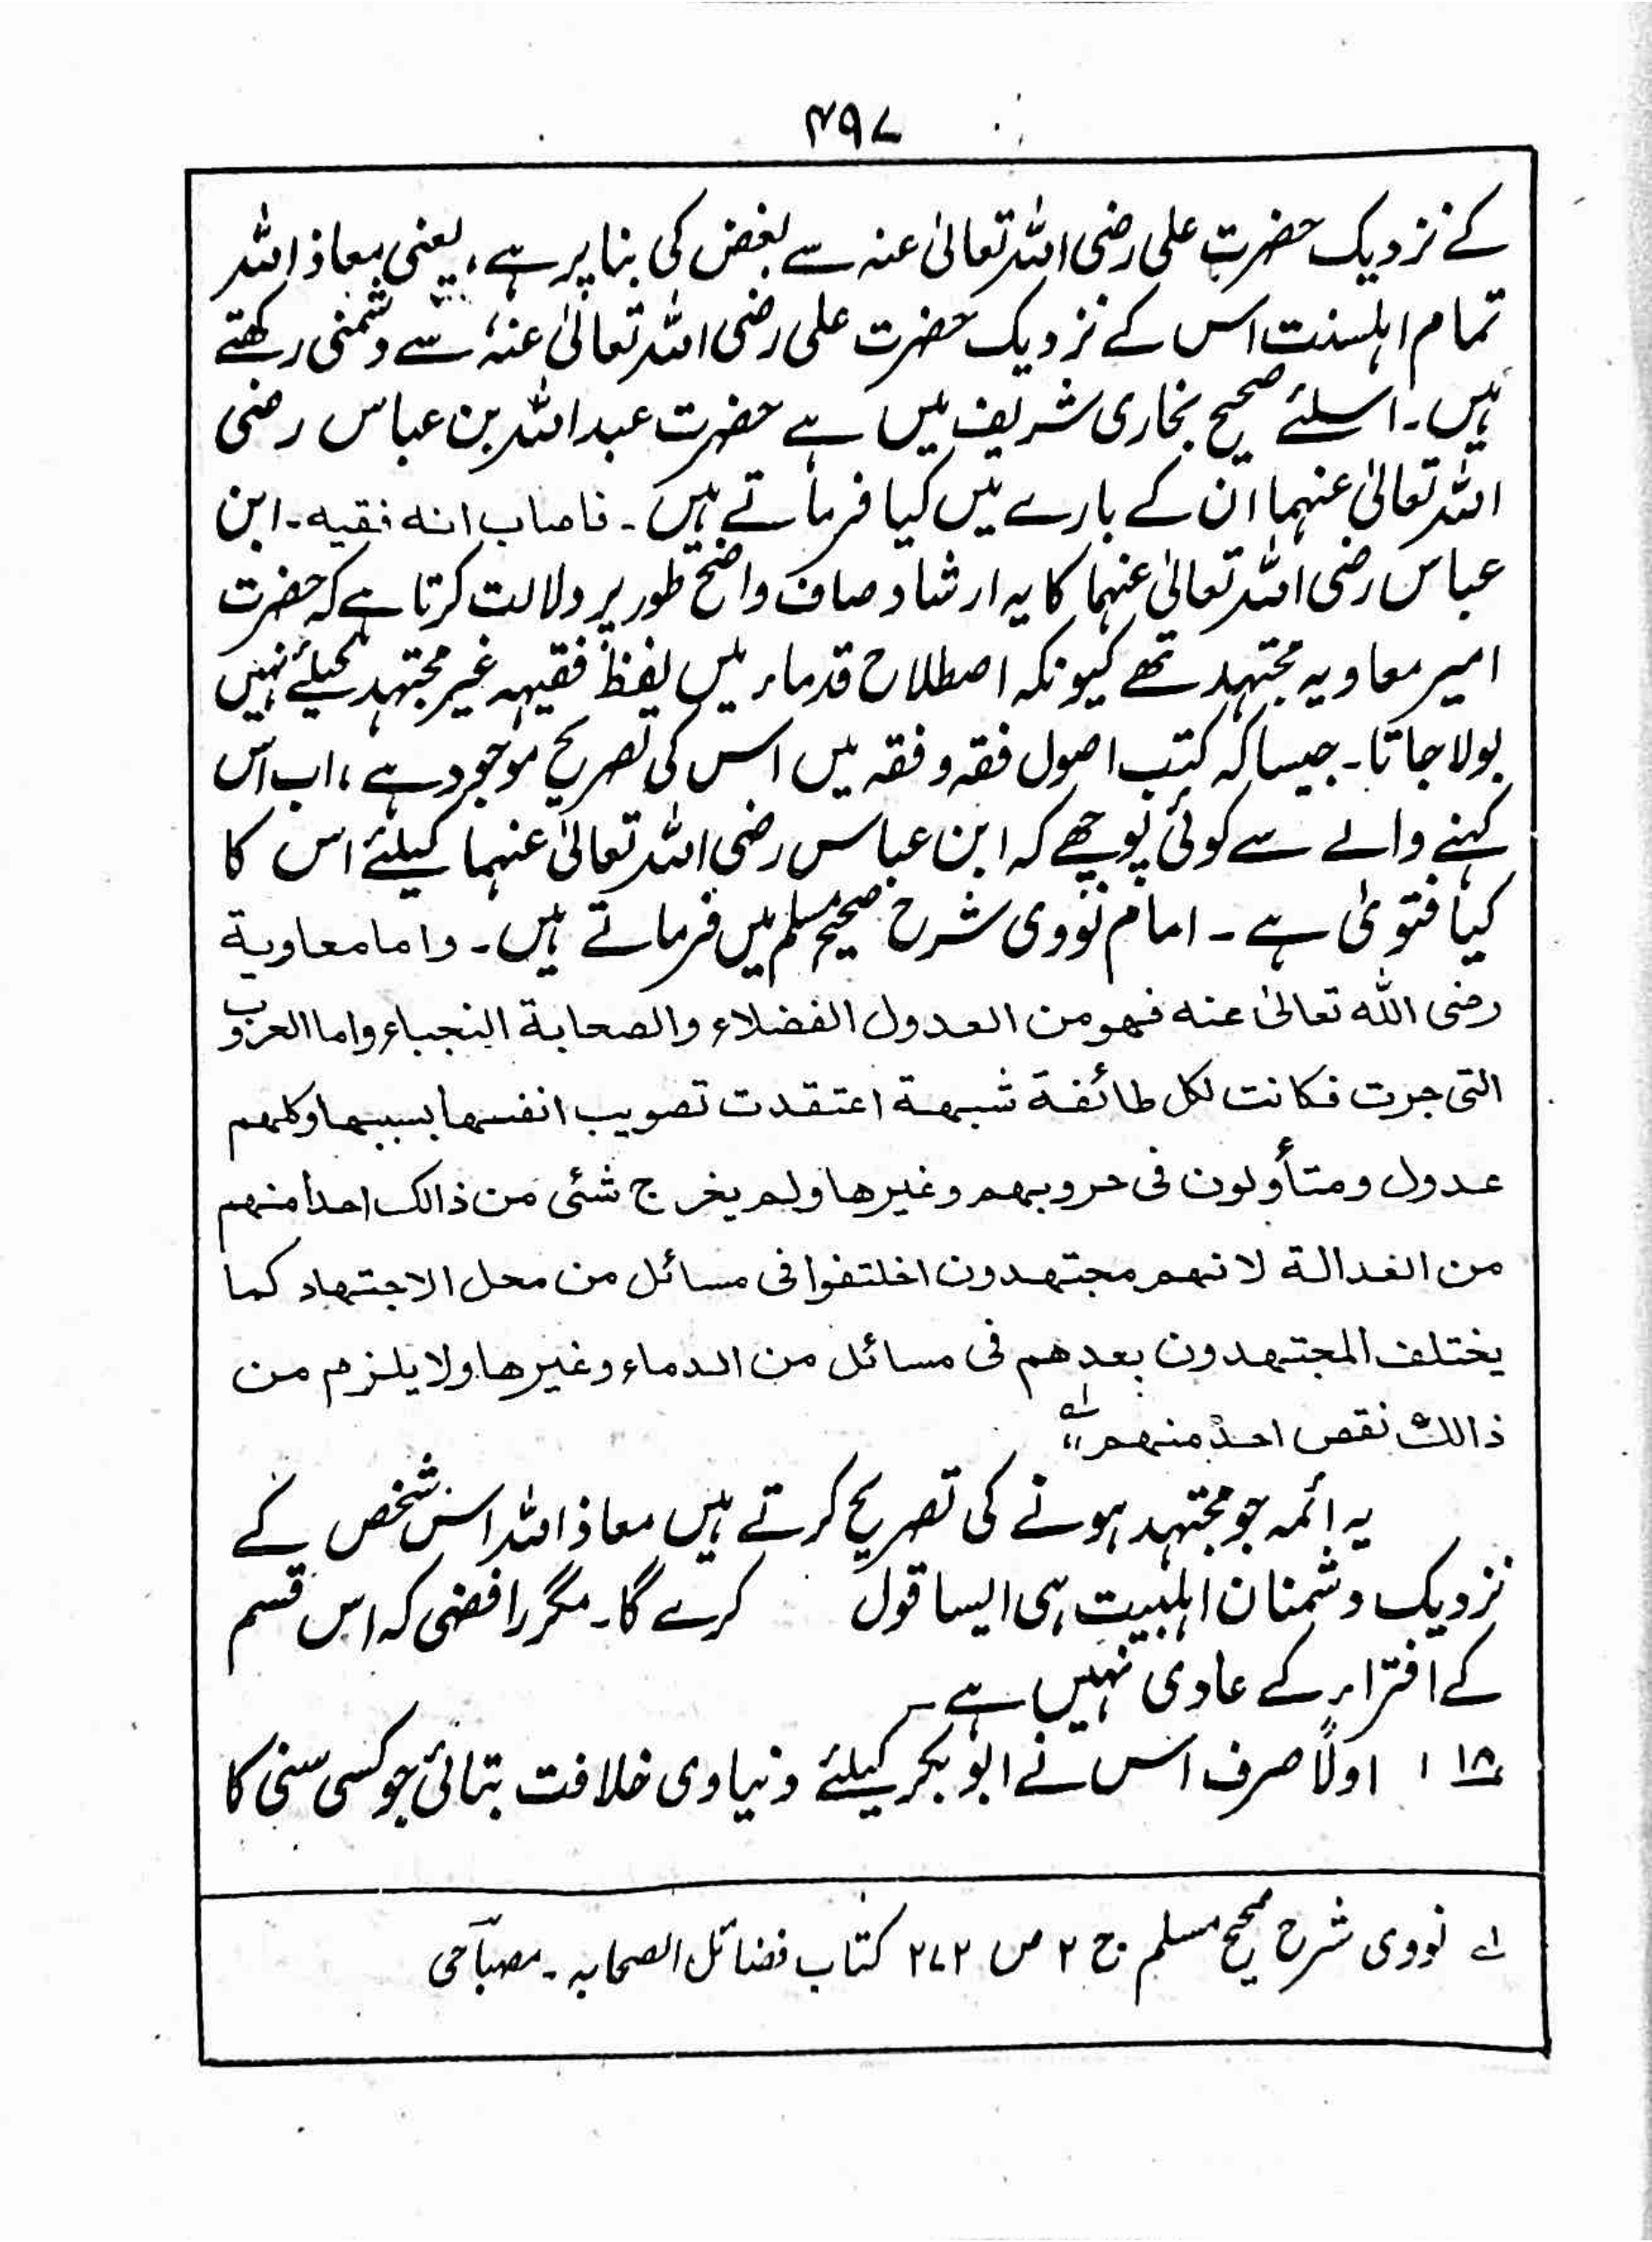 ۴۹۷
کے نزدیک حضرت علی رضی اللہ تعالیٰ عنہ سے بغض کی بنا پر ہے، یعنی معاذ اللہ
تمام اہلسنت اس کے نزدیک حضرت علی رضی اللہ تعالیٰ عنہٗ سے دشمنی رکھتے
ہیں۔ اسلئے صحیح بخاری شریف میں ہے حضرت عبداللہ بن عباس رضی
اللہ تعالیٰ عنہما ان کے بارے میں کیا فرماتے ہیں۔ فاصاب انہ فقیہ۔ ابن
عباس رضی اللہ تعالیٰ عنہما کا یہ ارشاد صاف واضح طور پر دلالت کرتا ہے کہ حضرت
امیر معاویہ مجتہد تھے کیونکہ اصطلاح قدماء میں لفظ فقیہہ غیر مجتہد کیلئے نہیں
بولا جاتا۔ جیسا کہ کتب اصول فقہ و فقہ میں اس کی تصریح موجود ہے، اب اس
کہنے والے سے کوئی پوچھے کہ ابن عباس رضی اللہ تعالیٰ عنہما کیلئے اس کا
کیا فتویٰ ہے۔ امام نووی شرح صحیح مسلم میں فرماتے ہیں۔ واما معاویة
رضی اللہ تعالیٰ عنه فهو من العدول الفضلاء والصحابة النجباء واما الحروب
التی جرت فکانت لکل طائفة شبهة اعتقدت تصویب انفسها بسببها وکلهم
عدول ومتأولون فی حروبهم وغیرها ولم یخرج شئی من ذالک احدا منهم
من العدالة لانهم مجتهدون اختلفوا فی مسائل من محل الاجتهاد کما
یختلف المجتهدون بعدهم فی مسائل من الدماء وغیرها ولا یلزم من
ذالک نقص احد منهم لہ،،
یہ ائمہ جو مجتہد ہونے کی تصریح کرتے ہیں معاذ اللہ اس شخص کے
نزدیک دشمنان اہلبیت ہی ایسا قول کرے گا۔ مگر رافضی کہ اس قسم
کے افتراء کے عادی نہیں ہے۔
۱۸ ۱ اولاً صرف اس نے ابو بکر کیلئے دنیاوی خلافت بتائی جو کسی سنی کا
لہ نووی شرح صحیح مسلم ج ۲ ص ۲۷۲ کتاب فضائل الصحابہ۔ مصباحی